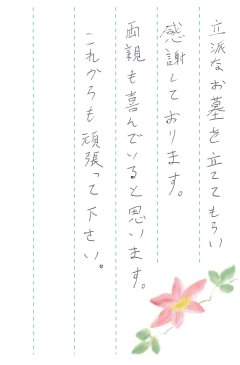 立派なお墓を立ててもらい
感謝しております。
両親も喜んでいると思います。
これからも頑張って下さい。